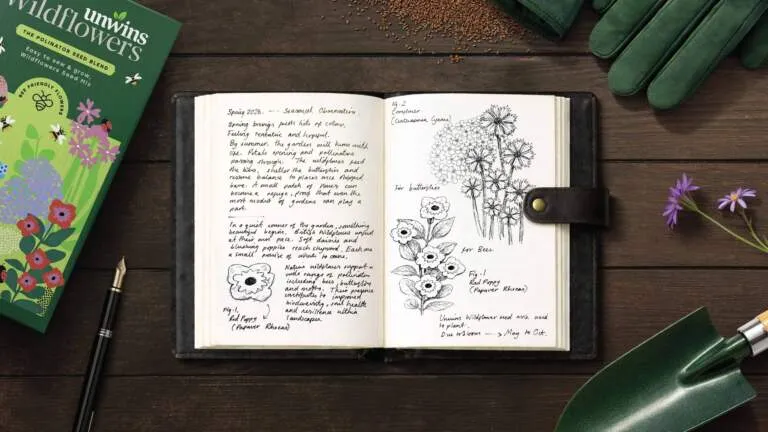 unwins
Wildflowers
THE POLLINATOR SEED BLEND
Easy to sow & grow,
Wildflowers Seed Mix
BEE FRIENDLY FLOWERS
Spring 2026. Seasonal Observation
Spring brings fresh hits of colour,
Feeling tentative and hopeful.
By summer, the gardens will hum with
life. Petals opening and pollinators
passing through. The wildflowers feed
the bees, shelter the butterflies and
restore balance to places once stripped
bare. A small patch of flowers can
become a refuge, proof that even the
most modest of gardens can play a
part.
In a quiet corner of the garden, something
beautiful begins. British wildflowers unfurl
at their own pace. Soft daisies and
blushing poppies reach skyward. Each one
a small promise of what's to come.
Native wildflowers support a
wide range of pollinators
including bees, butterflies
and moths. Their presence
contributes to improved
biodiversity, soil health
and resilience within
landscapes.
Fig. 1
Red Poppy
(Papaver Rhoeas)
Fig. 2
Cornflower
(Centaurea Cyanus)
for butterflies
for Bees.
Fig. 1
Red Poppy
(Papaver Rhoeas)
Unwins Wildflower seed mix used
to plant.
Due to bloom → May to Oct.